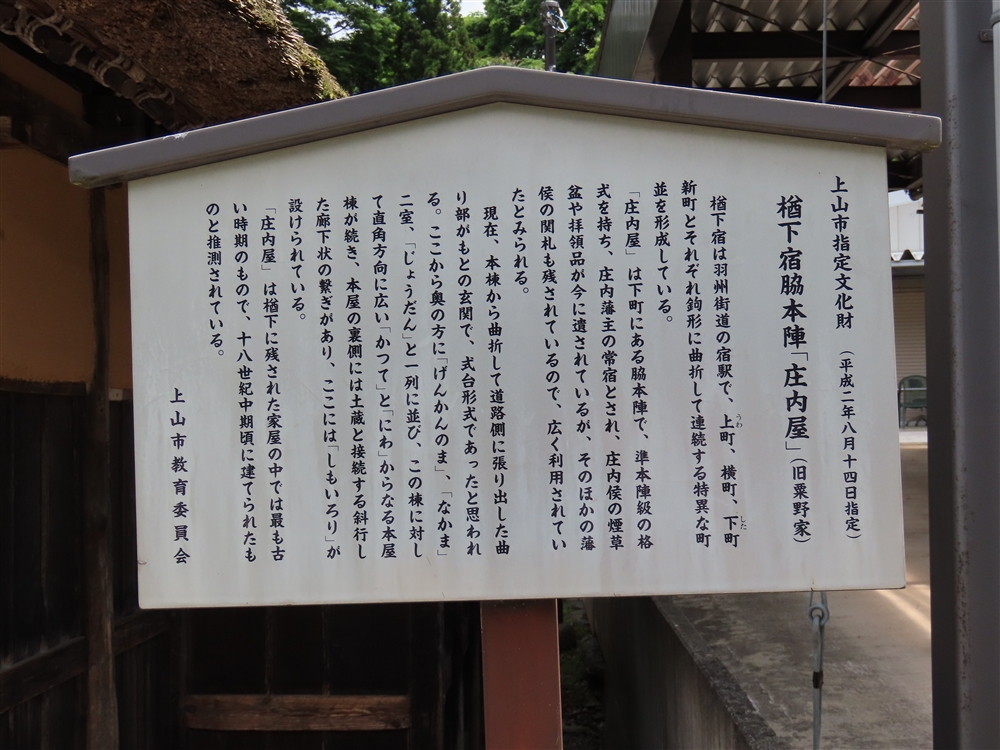 上山市指定文化財 (平成二年八月十四日指定)
楢下宿脇本陣「庄内屋」(旧粟野家)
楢下宿は羽州街道の宿駅で、上町、横町、下町
うわ
した
新町とそれぞれ鉤形に曲折して連続する特異な町
並を形成している。
「庄内屋」は下町にある脇本陣で、準本陣級の格
式を持ち、庄内藩主の常宿とされ、庄内侯の煙草
盆や拝領品が今に遺されているが、そのほかの藩
侯の関札も残されているので、広く利用されてい
たとみられる。
現在、本棟から曲折して道路側に張り出した曲
り部がもとの玄関で、式台形式であったと思われ
る。ここから奥の方に「げんかんのま」、「なかま」
二室、「じょうだん」と一列に並び、この棟に対し
て直角方向に広い「かつて」と「にわ」からなる本屋
棟が続き、本屋の裏側には土蔵と接続する斜行し
た廊下状の繋ぎがあり、ここには「しもいろり」が
設けられている。
「庄内屋」は楢下に残された家屋の中では最も古
い時期のもので、十八世紀中期頃に建てられたも
のと推測されている。
上山市教育委員会